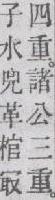 四重。諸公三重。
子水兕革棺